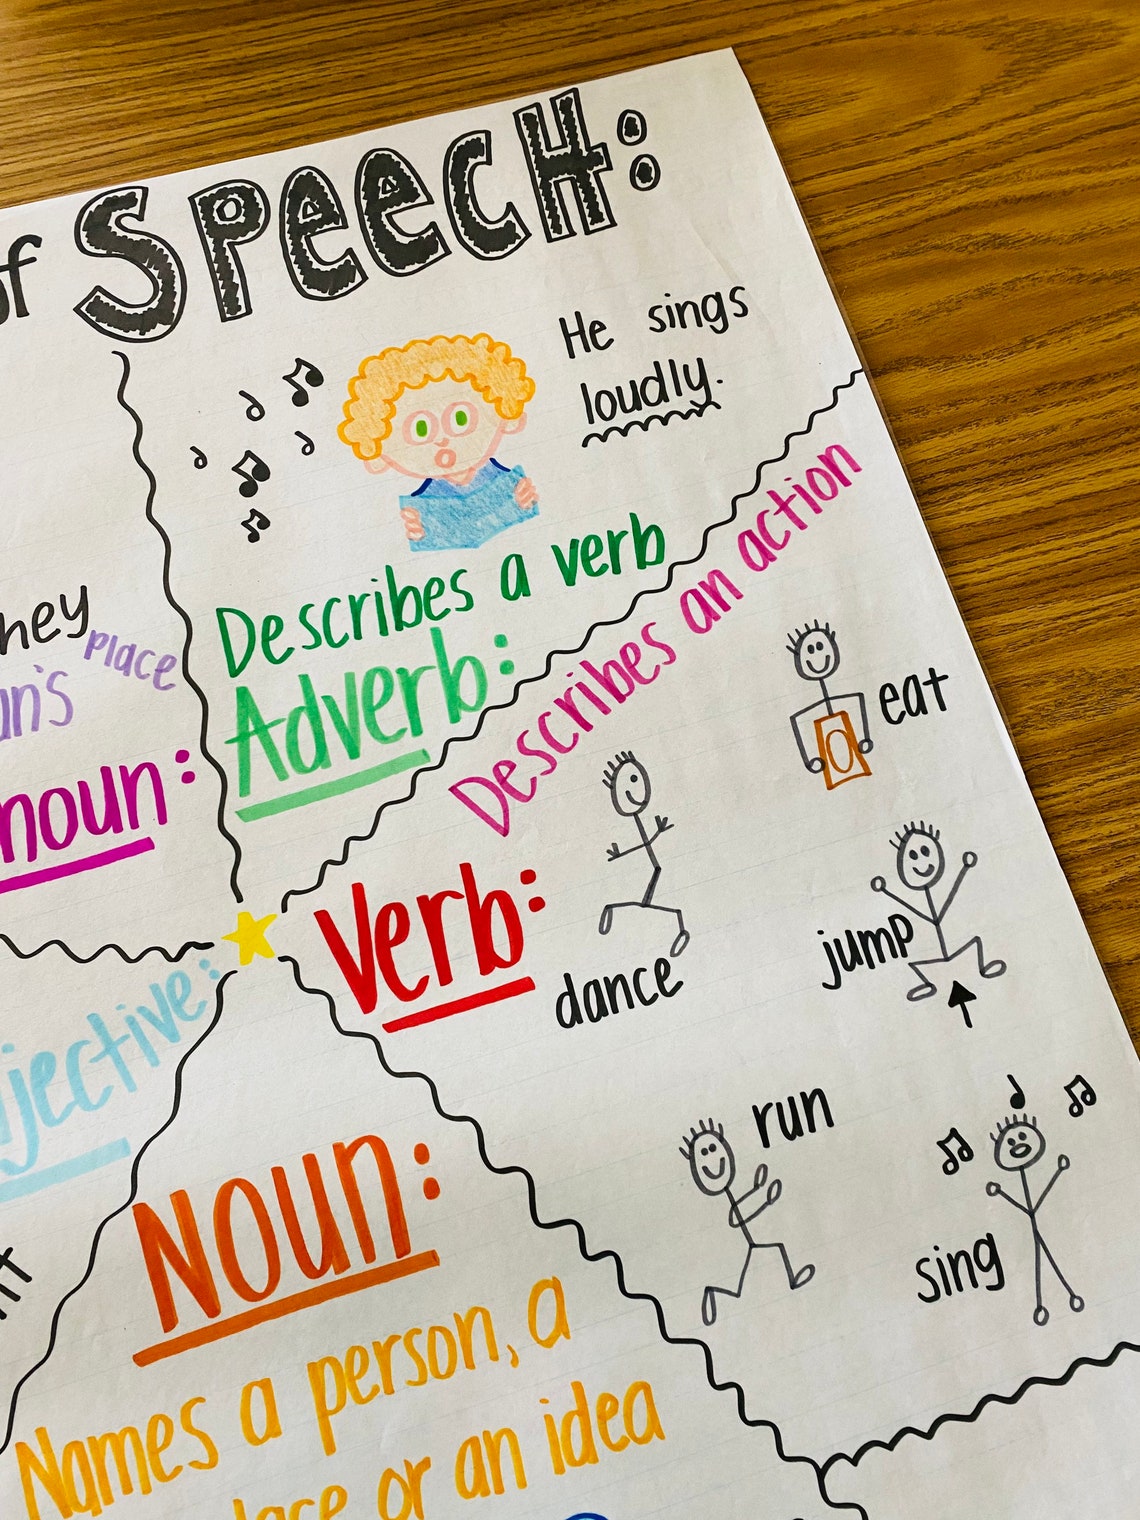 of SPeecH:
He sings
loudly.
Describes a verb
Adverb:
hey
Place
un's
noun:
Describes an action
Verb:
eat
dance
jump
run
sing
jective:
Noun:
Names a person, a
lace or an idea